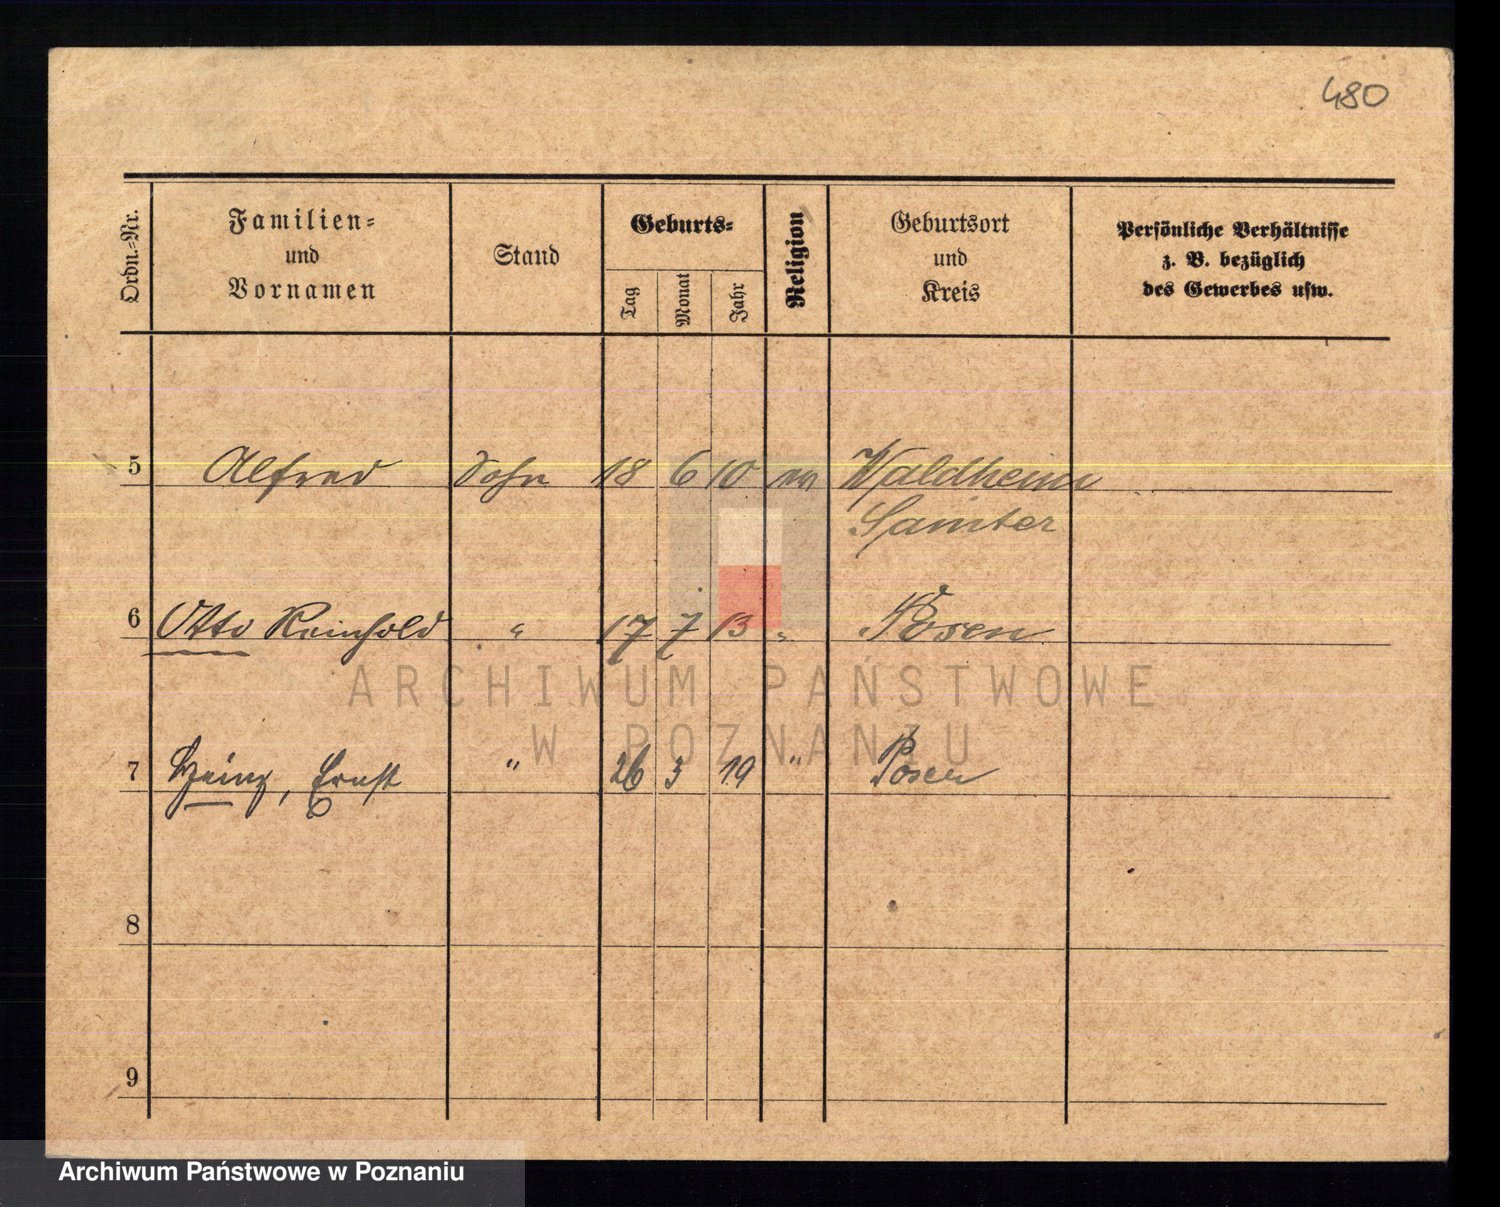 480
Ordn.-Nr.
Familien-
und
Vornamen
Stand
Geburts-
Tag
Monat
Jahr
Religion
Geburtsort
und
Kreis
Persönliche Verhältnisse
z. B. bezüglich
des Gewerbes usw.
5 Alfred Sohn 18 6 10 Waldheim
Samter
6 Otto Reinhold " 17 7 13 " Posen
7 Heinz, Ernst " 26 3 19 " Posen
8
9
ARCHIWUM PAŃSTWOWE
W POZNANIU
Archiwum Państwowe w Poznaniu